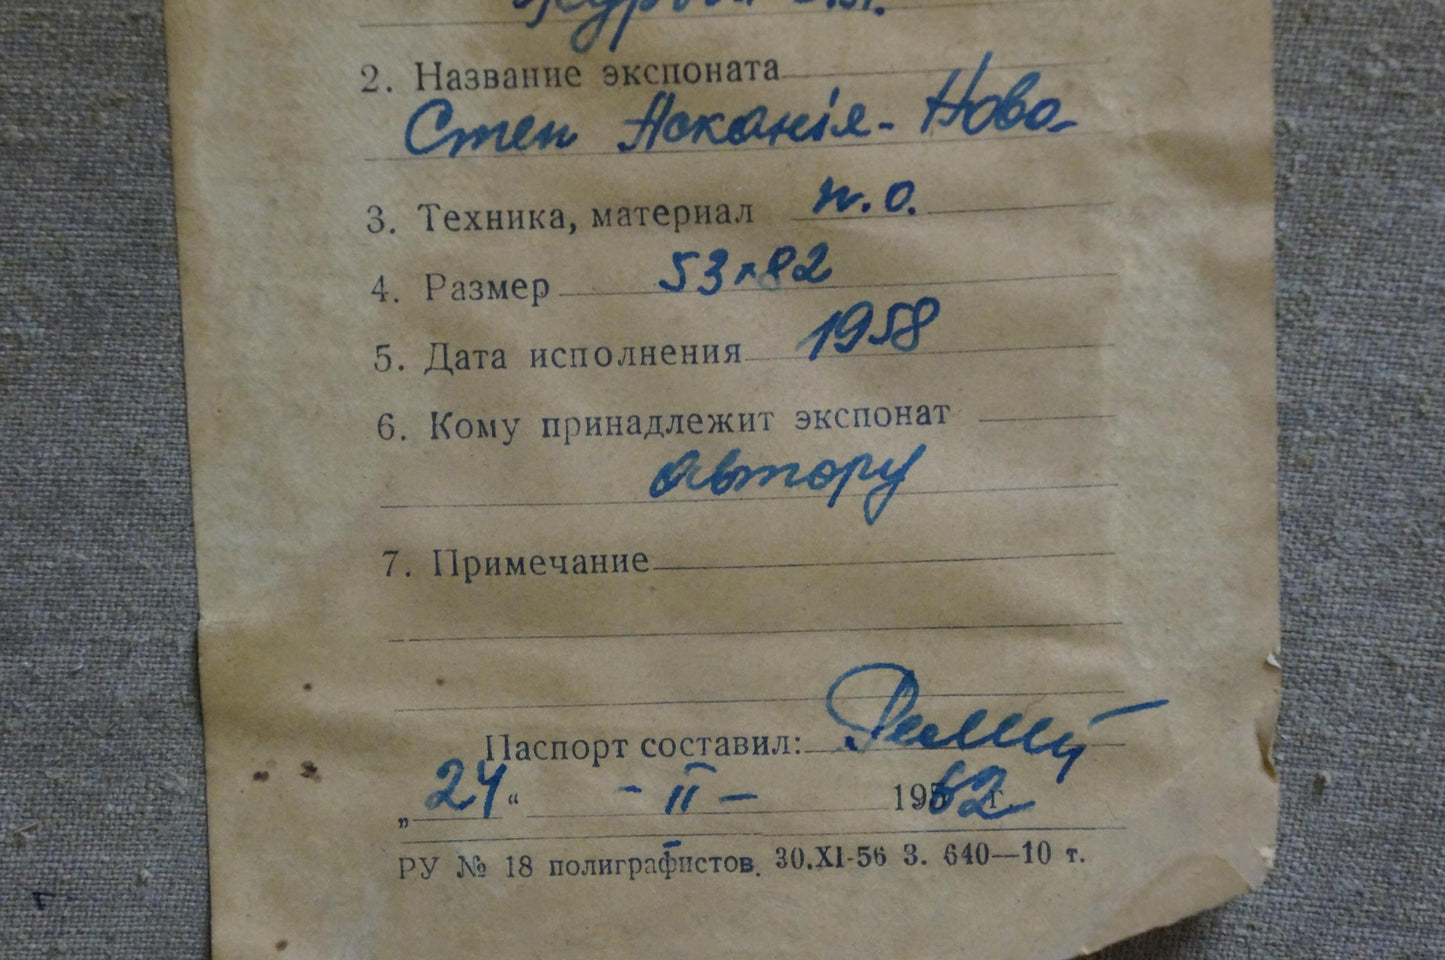 2. Название экспоната
Степ Асканія-Нова
3. Техника, материал п.о.
4. Размер 53х82
5. Дата исполнения 1958
6. Кому принадлежит экспонат
автору
7. Примечание
Паспорт составил:
„24“ - II - 1962 г.
РУ № 18 полиграфистов. 30.XI-56 З. 640—10 т.